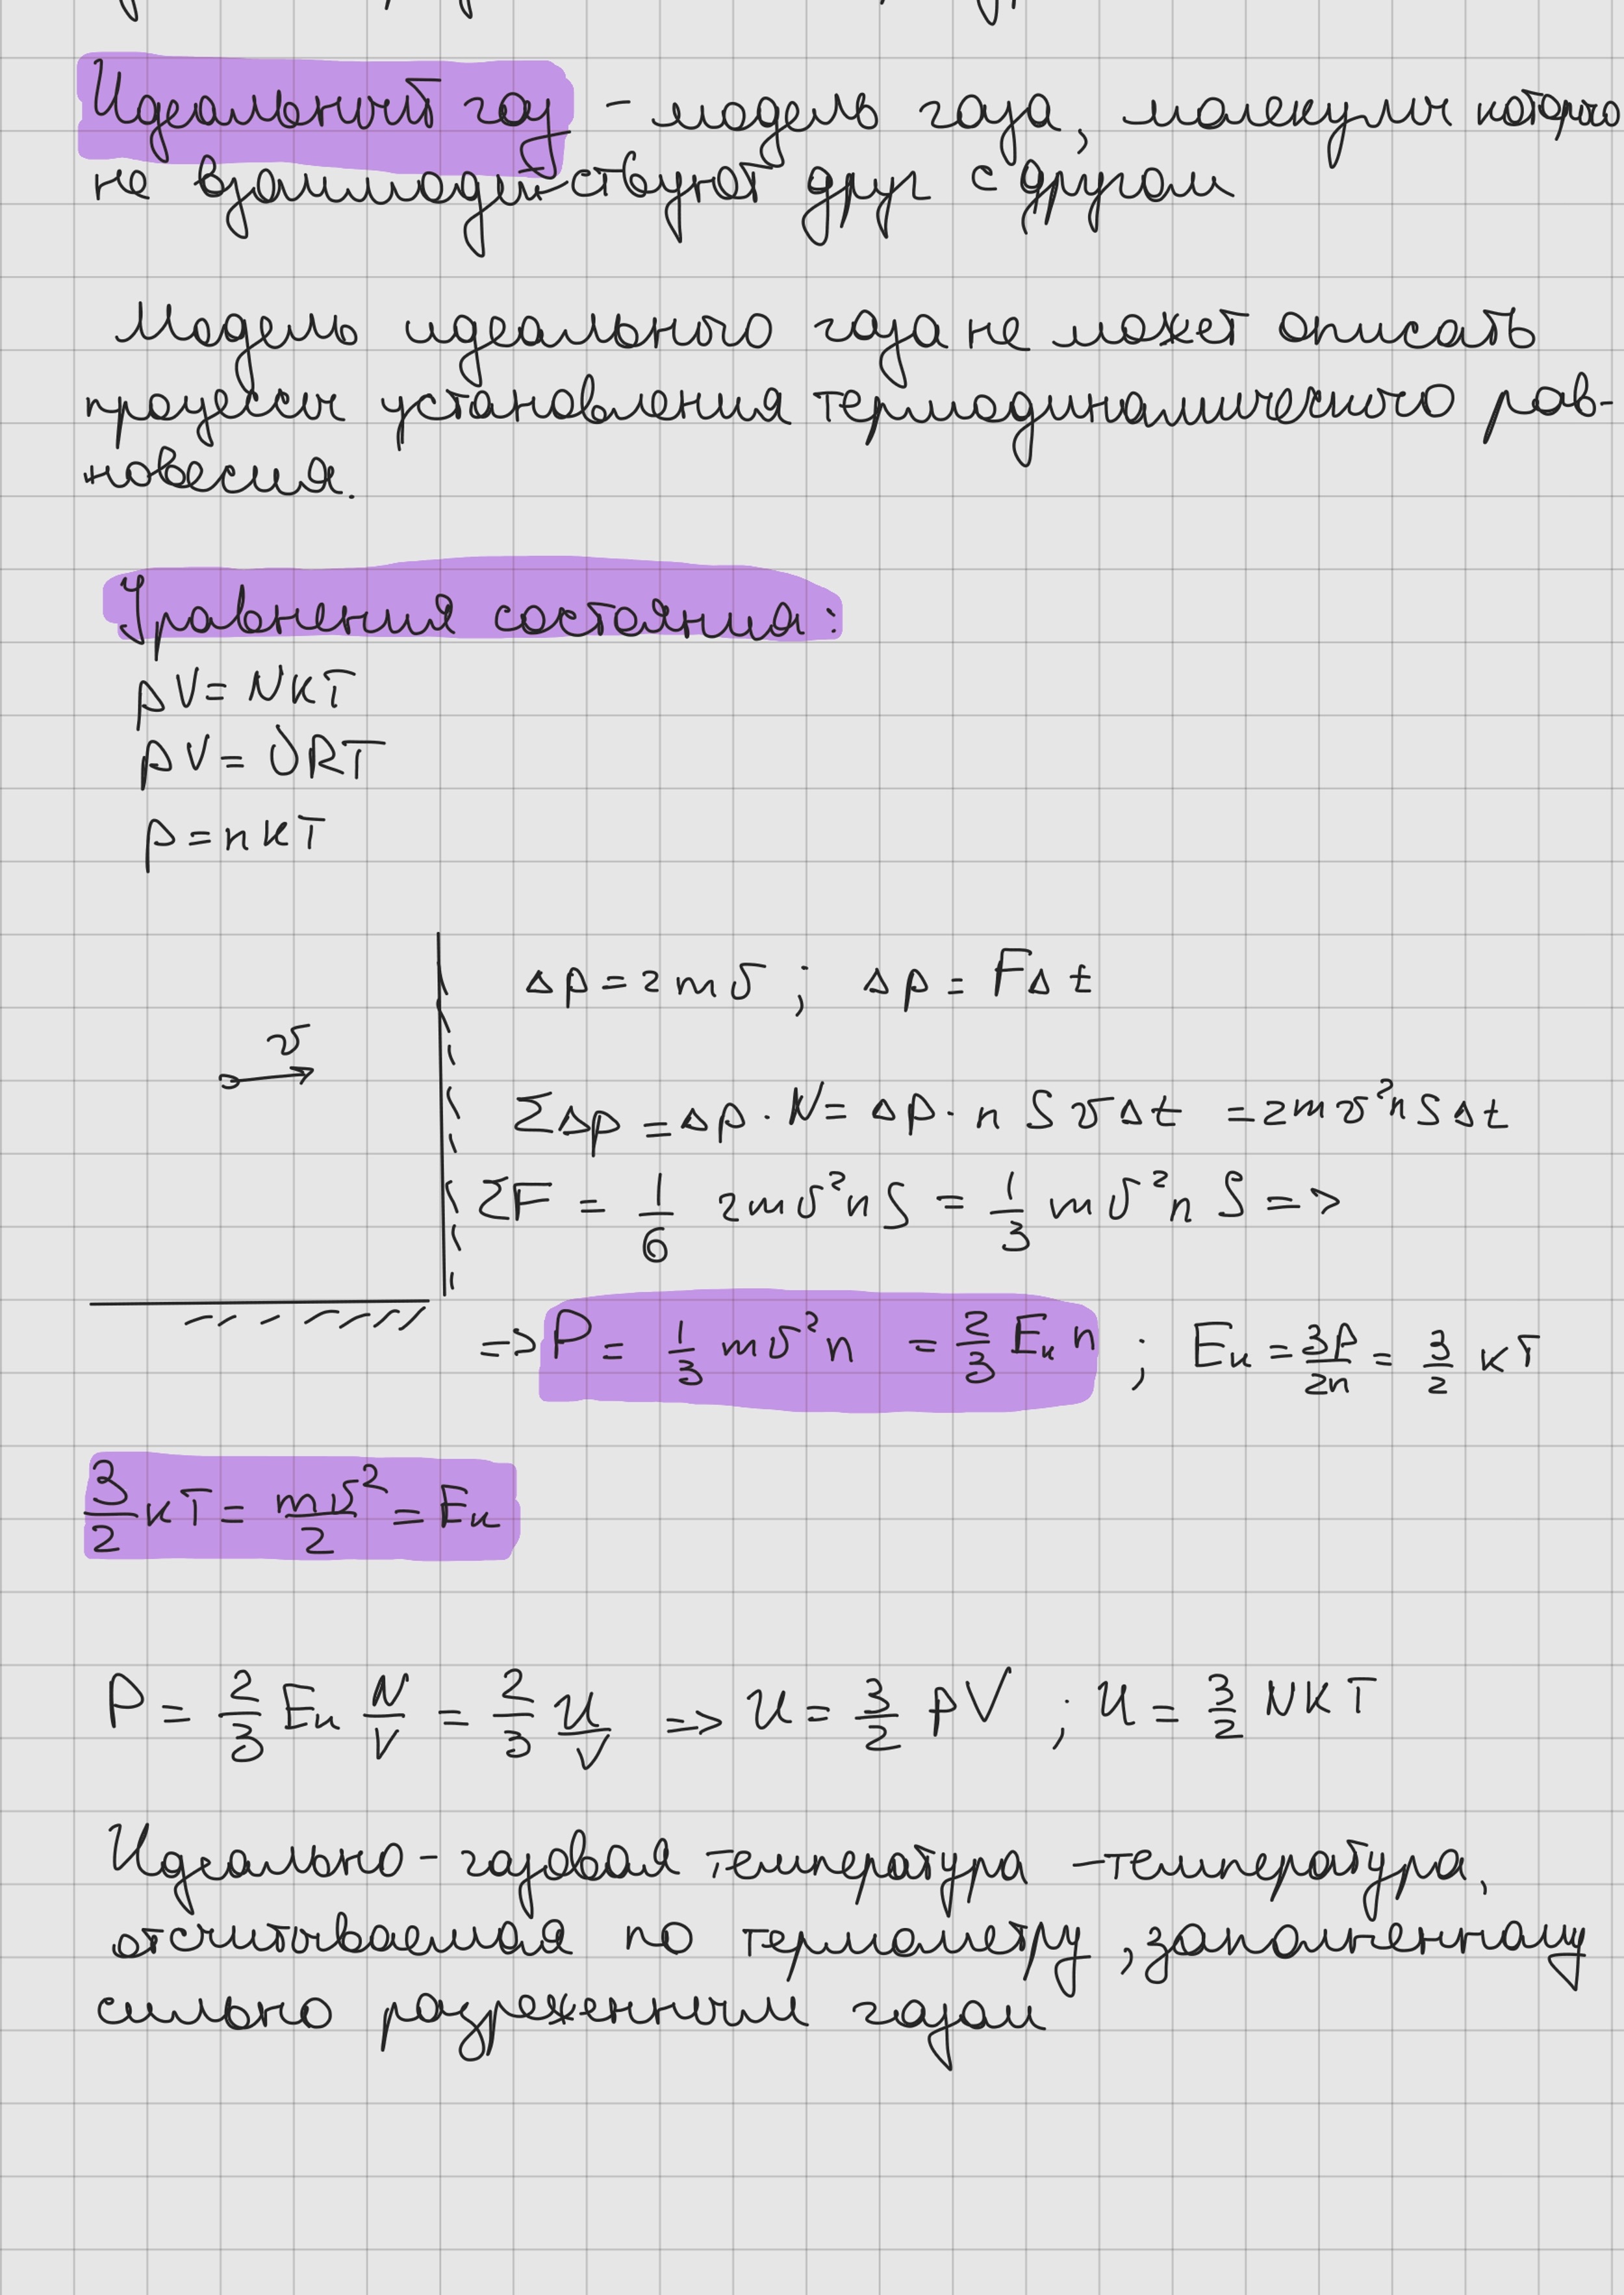 Идеальный газ - модель газа, молекулы которого
не взаимодействуют друг с другом
Модель идеального газа не может описать
процессы установления термодинамического рав-
новесия.
Уравнения состояния:
pV = NkT
pV = νRT
p = nkT
Δp = 2mv ; Δp = FΔt
v
ΣΔp = Δp · N = Δp · n S v Δt = 2mv²n S Δt
ΣF = 1/6 2mv²nS = 1/3 mv²n S =>
=> P = 1/3 mv²n = 2/3 Eк n ; Eк = 3p/2n = 3/2 кT
3/2 кT = mv²/2 = Eк
P = 2/3 Eк N/V = 2/3 U/V => U = 3/2 pV ; U = 3/2 NKT
Идеально-газовая температура - температура,
отсчитываемая по термометру, заполненному
сильно разреженным газом